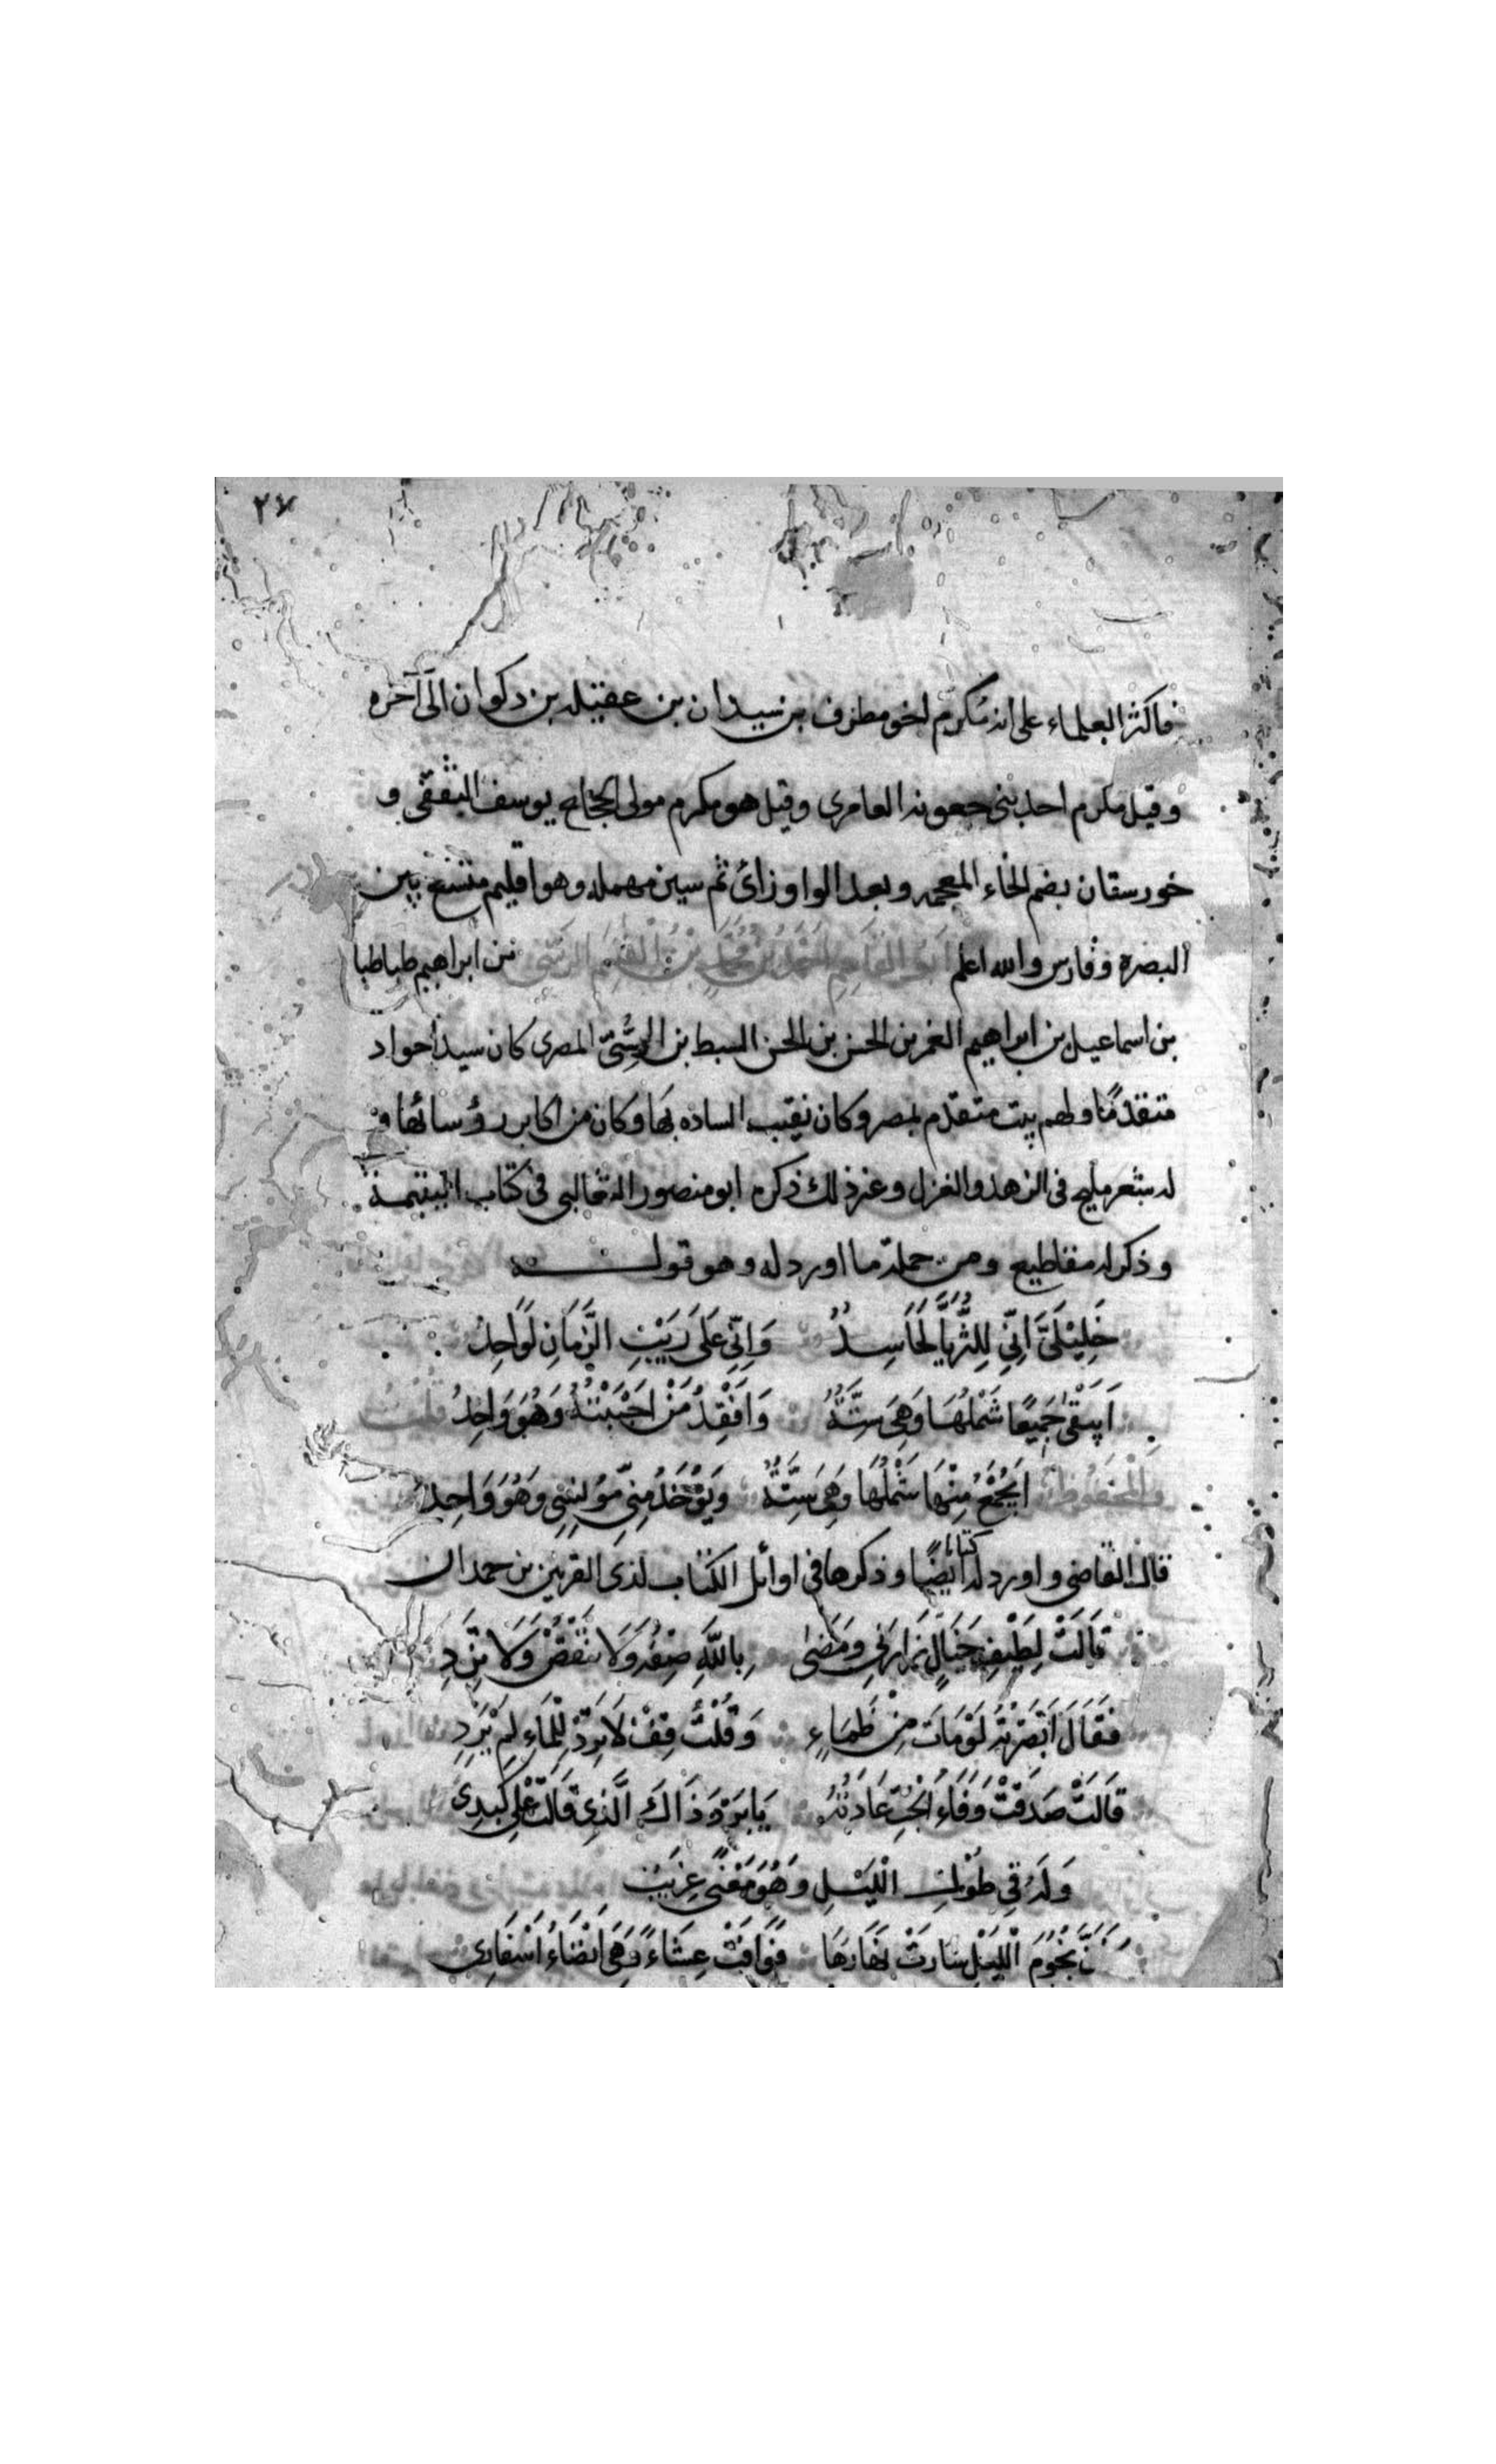 ٢٧
فاكثر العلماء على انه مكرم اخو مطرف بن سيدان بن عقيله بن دكوان الى آخره
وقيل مكرم احد بنى جعونه العامرى وقيل هو مكرم مولى الحجاج يوسف الثقفى و
خورستان بضم الخاء المعجمه وبعد الواو زائ ثم سين مهمله وهو اقليم متسع بين
البصرة وفارس والله اعلم ابو القاسم احمد بن محمد بن ابراهيم طباطبا
بن اسماعيل بن ابراهيم الغمر بن الحسن بن الحسن السبط بن الرسّىّ المصرى كان سيداً جواد
متقدمًا ولهم بيت متقدم بمصر وكان نقيب الساده بها وكان من اكابر رؤسائها و
له شعر مليح فى الزهد والغزل وغير ذلك ذكره ابو منصور الثعالبى فى كتاب اليتيمة
وذكر له مقاطيع ومن جملة ما اورد له وهو قوله
خَلِيْلَىَّ اَنِّي لِلثُّرَيَّا لَحَاسِدُ وَاِنّي عَلَى رَيْبِ الزَّمَانِ لَوَاجِدُ
اَيَبْقَى جَمِيعًا شَمْلُهَا وَهِىَ سِتَّةٌ وَاَفْقِدُ مَنْ اَحْبَبْتُهُ وَهُوَ وَاحِدُ
اَيُجْمَعُ مِنْهَا شَمْلُهَا وَهِىَ سِتَّةٌ وَيُؤْخَذُ مِنّي مُؤنِسِي وَهُوَ وَاحِدُ
قال القاضى واورد له كتابا ايضًا وذكرها فى اوائل الكتاب لذى القرنين بن حمدان
قَالَتْ لِطَيْفِ خَيَالٍ زَارَنِي وَمَضَى بِاللّهِ صِفْهُ وَلَا تَنْقُصْ وَلَا تَزِدِ
فَقَالَ اَبْصَرْتُهُ لَوْ مَاتَ مِنْ ظَمَاءٍ وَقُلْتُ قِفْ لَا تَرِدْ لِلْمَاءِ لَمْ يَرِدِ
قَالَتْ صَدَقْتَ وَفَاءُ الْحُبِّ عَادَتُهُ يَا بَرْدَ ذَاكَ الَّذِى قَالَتْ عَلَى كَبِدِى
وَلَهُ فِي طُوْلِ الْلَيْلِ وَهُوَ مَعْنًى غَرِيْبٌ
كَاَنَّ نُجُوْمَ الْلَيْلِ سَارَتْ نَهَارَهَا فَوَافَتْ عِشَاءً وَهَىَ اَنْضَاءُ اَسْفَارِى